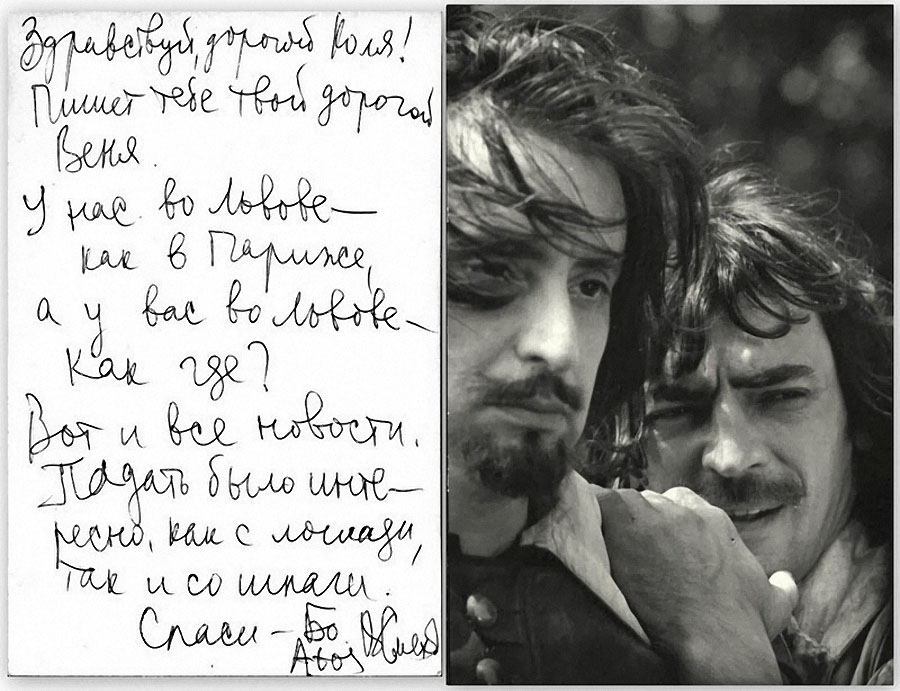 Здравствуй, дорогой Коля!
Пишет тебе твой дорогой
Веня.
У нас во Львове —
как в Париже,
а у вас во Львове —
Как где?
Вот и все новости.
Падать было инте-
ресно, как с лошади,
так и со шпаги.
Спаси — Бо.
Atos